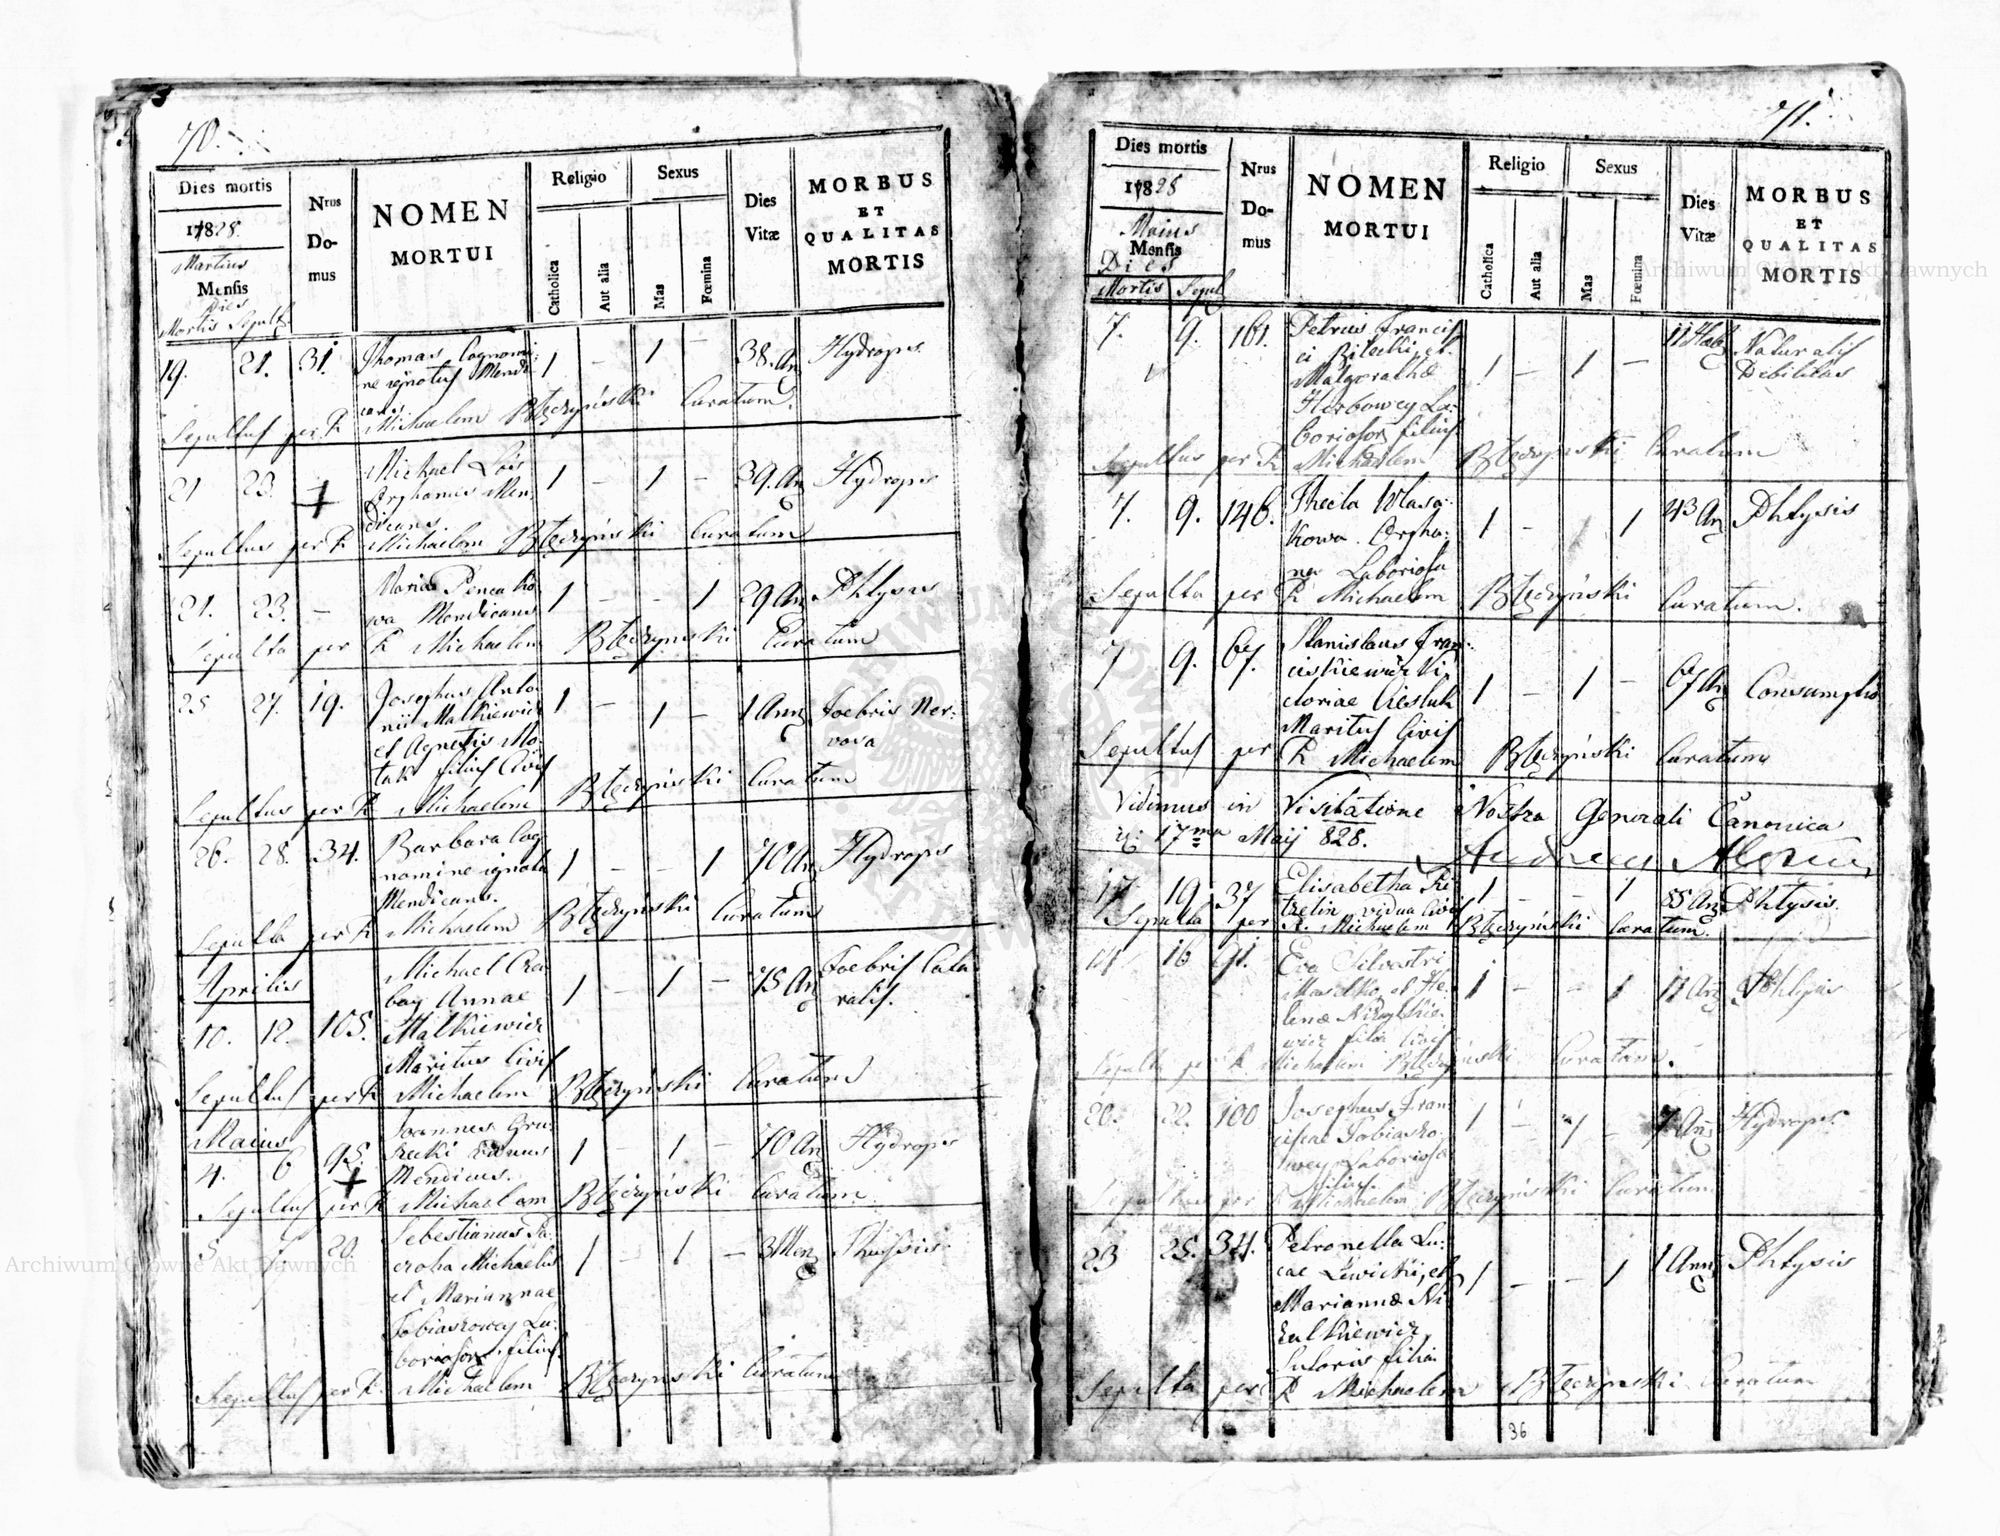 70.
Dies mortis
1828.
Martius
Mensis
Dies
Mortis Sepult
Nrus
Do-
mus
NOMEN
MORTUI
Religio
Catholica
Aut alia
Sexus
Mas
Fœmina
Dies
Vitæ
MORBUS
ET
QUALITAS
MORTIS
19. 21. 31. Thomas Cognomi-
ne ignotus Mendi
cans 1 – 1 – 38. An Hydrops
Sepultus per R Michaelem Błędzyński Curatum.
21 23. – Michael Lois
Orphanus Men-
dicans. 1 – 1 – 39. An Hydrops
Sepultus per R Michaelem Błędzyński Curatum
21. 23. – Maria
wa Mendicans 1 – – 1 29 An Phtysis
Sepulta per R Michaelem Błędzyński Curatum
25 27. 19. Josephus Anto-
nii Malkiewicz
et Agnetis Mo-
tak filius Civis 1 – 1 – 1 Ann Foebris Ner-
vosa
Sepultus per R Michaelem Błędzyński Curatum
26. 28. 34. Barbara Cog
nomine ignota
Mendicans. 1 – – 1 70 An Hydrops
Sepulta per R Michaelem Błędzyński Curatum
Aprilis
10. 12. 105. Michael
Annae
Malkiewicz
Maritus Civis 1 – 1 – 75 An Foebris Cata
ralis.
Sepultus per R Michaelem Błędzyński Curatum
Maius
4. 6 95. Joannes Gru
szecki
Mendicus. 1 – 1 – 70 An Hydrops
Sepultus per R Michaelem Błędzyński Curatum.
5 7 20. Sebestianus Pa-
crota Michaelis
et Mariannae
Tobiaszowey La-
borioso filius 1 – 1 – 3 Men
Sepultus per R. Michaelem Błędzyński Curatum
71.
Dies mortis
1828
Maius
Mensis
Dies
Mortis Sepul
Nrus
Do-
mus
NOMEN
MORTUI
Religio
Catholica
Aut alia
Sexus
Mas
Fœmina
Dies
Vitæ
MORBUS
ET
QUALITAS
MORTIS
7. 9. 161. Petrus Francis
ci Bilecki, et
Malgorathæ
Herbowey La-
borioson filius 1 – 1 – 11 Naturalis
Debilitas
Sepultus per R Michaelem Błędzyński Curatum
7. 9. 146. Thecla Wlasy
kowa Orpha-
na Laboriosa 1 – 1 43 An Phtysis
Sepulta per R Michaelem Błędzyński Curatum.
7 9. 67. Stanislaus Fran-
ciszkiewicz Vi
ctoriae Cieslak
Maritus Civis 1 – 1 – 67 An Consumptio
Sepultus per R Michaelem Błędzyński Curatum
Vidimus in Visitatione Nostra Generali Canonica
17ma Maij 828.
17 19. 37 Elisabetha
vidua Civis 1 – – 1 55 An Phtysis.
Sepulta per R. Michaelem Błędzyński Curatum.
16 91. Eva Silvestri
et He-
lenæ
filia Civis 1 – – 1 11 An Phtysis
Sepulta per R. Michaelem Błędzyński Curatum.
20. 22. 100 Josephus Fran
ciscae Tobiaszo
wey Laboriosa
filius. 1 – 1 – An Hydrops
Sepultus per R Michaelem Błędzyński Curatum
23 25. 34. Petronella Lu-
cae Lewicki, et
Mariannæ Ni
kulkiewicz
Sutoris filia 1 – – 1 1 Ann Phtysis
Sepulta per R Michaelem Błędzyński Curatum
36
Archiwum Główne Akt Dawnych
Archiwum Główne Akt Dawnych